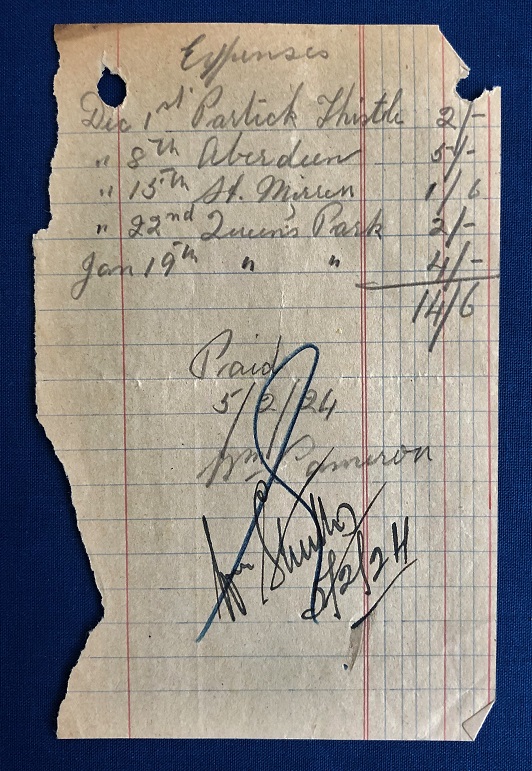 Expenses
Dec 1st Partick Thistle 2/-
" 8th Aberdeen 5/-
" 15th St. Mirren 1/6
" 22nd Queen's Park 2/-
Jan 19th " " 4/-
14/6
Paid
5/2/24
Wm Cameron
5/2/24